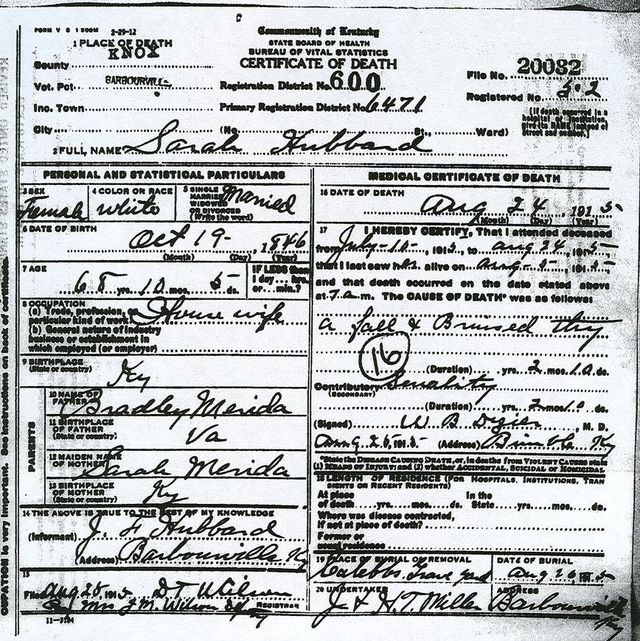 FORM V S 1 500M 2-29-12
1 PLACE OF DEATH
KNOX
County
Vot. Pct. BARBOURVILLE
Inc. Town
City
Commonwealth of Kentucky
STATE BOARD OF HEALTH
BUREAU OF VITAL STATISTICS
CERTIFICATE OF DEATH
Registration District No. 600
Primary Registration District No. 6471
(No. St., Ward)
File No. 20032
Registered No. 52
(If death occurred in a hospital or institution, give its NAME instead of street and number.)
2 FULL NAME Sarah Hubbard
PERSONAL AND STATISTICAL PARTICULARS
3 SEX Female
4 COLOR OR RACE White
5 SINGLE MARRIED WIDOWED OR DIVORCED (Write the word) Married
6 DATE OF BIRTH Oct 19 1846
(Month) (Day) (Year)
7 AGE 68 yrs. 10 mos. 5 ds.
IF LESS than 1 day ... hrs. or ... min.?
8 OCCUPATION
(a) Trade, profession, or particular kind of work House wife
(b) General nature of industry
business or establishment in
which employed (or employer)
9 BIRTHPLACE
Ky
PARENTS
10 NAME OF FATHER Bradley Merida
11 BIRTHPLACE OF FATHER (State or country) Va
12 MAIDEN NAME OF MOTHER Sarah Merida
13 BIRTHPLACE OF MOTHER (State or country) Ky
14 THE ABOVE IS TRUE TO THE BEST OF MY KNOWLEDGE
(Informant) J. F. Hubbard
(Address) Barbourville Ky
15
Filed Aug 28 1915 D T Wilson
By Mrs J. M. Wilson REGISTRAR
11-3184
MEDICAL CERTIFICATE OF DEATH
16 DATE OF DEATH
Aug 24 1915
(Month) (Day) (Year)
17 I HEREBY CERTIFY, That I attended deceased
from July-10-, 1915, to Aug 24, 1915
that I last saw h alive on Aug-5-, 1915
and that death occurred on the date stated above
at 7 a m. The CAUSE OF DEATH* was as follows:
a fall & Bruised thy
16
(Duration) yrs. 2 mos. 10 ds.
Contributory Senality
(SECONDARY)
(Duration) yrs. 2 mos. 10 ds.
(Signed) W B M. D.
Aug 26, 1915 (Address) Bimble Ky
*State the Disease Causing Death, or, in deaths from Violent Causes state
(1) Means of Injury; and (2) whether Accidental, Suicidal or Homicidal
18 LENGTH OF RESIDENCE (For Hospitals, Institutions, Transients or Recent Residents)
At place of death yrs. mos. ds. In the State yrs. mos. ds.
Where was disease contracted,
if not at place of death?
Former or
usual residence
19 PLACE OF BURIAL OR REMOVAL
Grave yard
DATE OF BURIAL
Aug 26 1915
20 UNDERTAKER
J & H. T. Miller
ADDRESS
Barbourville Ky
OCCUPATION is very important. See instructions on back of certificate.